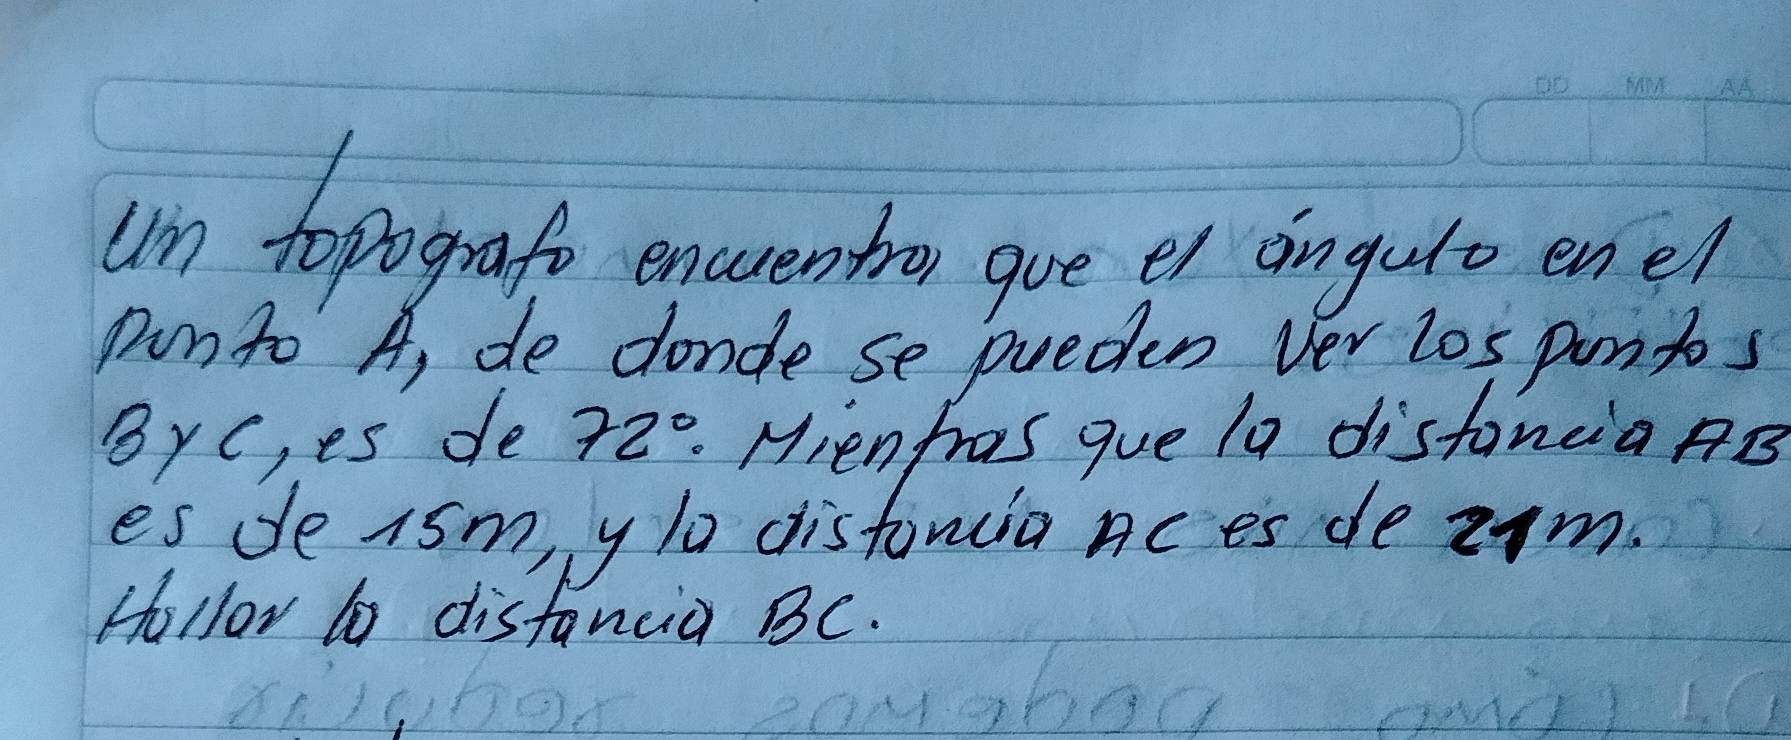 DD MM AA
Un topografo encuentra que el ángulo en el
punto A, de donde se pueden ver los puntos
B y C, es de 72°. Mientras que la distancia AB
es de 15m, y la distancia AC es de 21m.
Hallar la distancia BC.